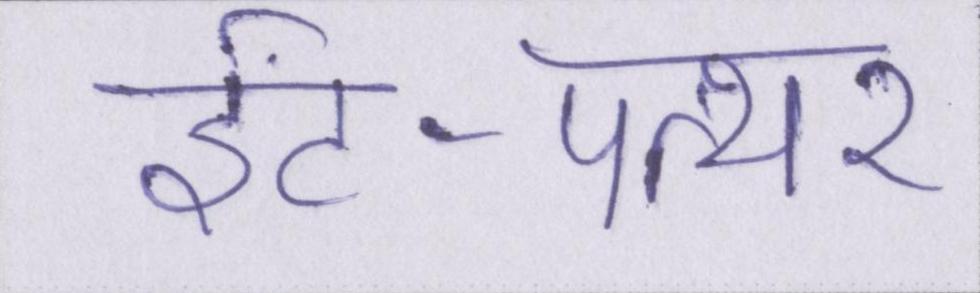 ईंट-पत्थर